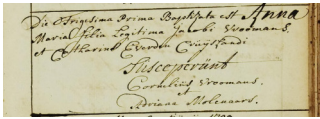 Die Trigesima Prima Baptizata est Anna
Maria filia Legitima Jacobi Vroomans
et Catharina Everden Cruijslandi
Susceperunt
Cornelius Vroomans
et
Adriana Molenaars.